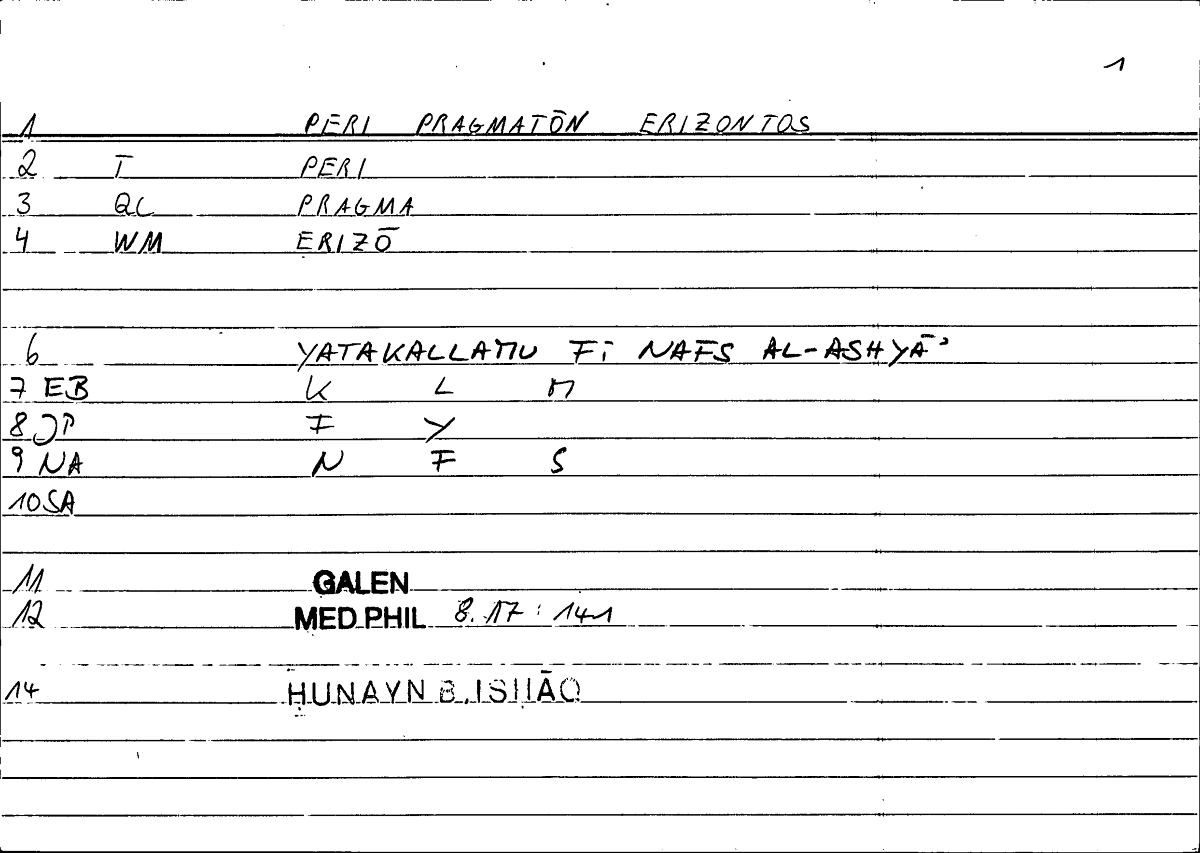 1
1 PERI PRAGMATŌN ERIZONTOS
2 T PERI
3 QC PRAGMA
4 WM ERIZŌ
6 YATAKALLAMU FĪ NAFS AL-ASHYĀʾ
7 EB K L M
8 JP F Y
9 NA N F S
10 SA
11 GALEN
12 MED PHIL 8.17:141
14 ḤUNAYN B. ISḤĀQ